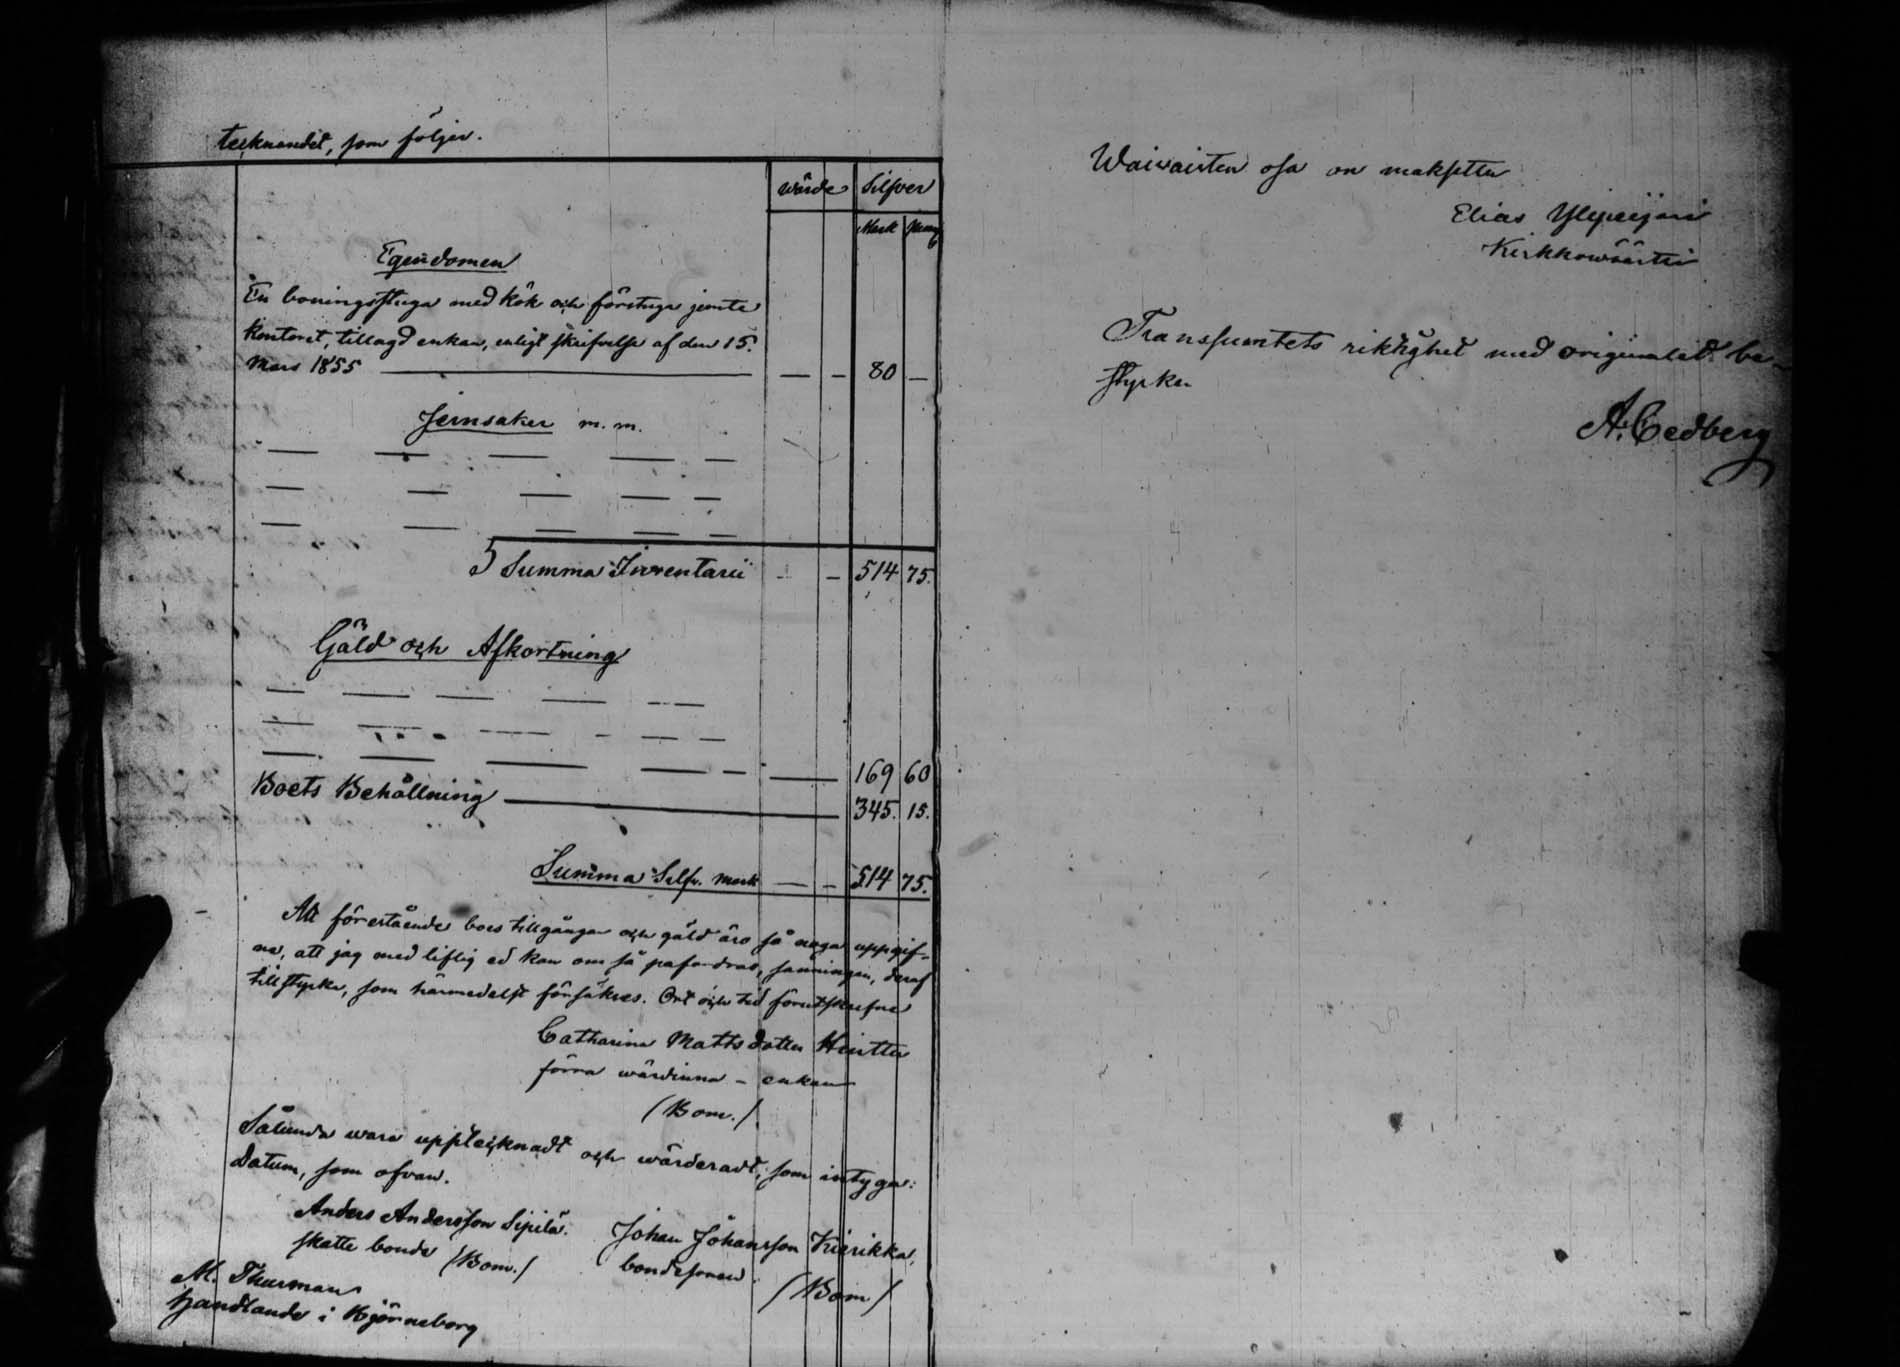 tecknandet, som följer.
wärde Silfver
Mark
Egendomen
En boningsstuga med kök och förstuga jemte
kontoret, tillagd enkan, enligt skrifvelse af den 15.
Mars 1855 — — — 80 —
Jernsaker m. m.
Summa Inventarii — — 514 75.
Gäld och Afkortning
169 60
Boets Behållning 345. 15.
Summa Silfv. Mark — — 514 75.
Att förestående boes tillgångar och gäld äro så noga uppgif-
na, att jag med liflig ed kan om så påfordras, sanningen, deraf
tillstyrka, som härmedelst försäkras. Ort och tid förutskrefne
Catharina Mattsdotter
förra wärdinna – enkan
(Bom.)
Sålunda wara upptecknadt och wärderadt, som intygar:
Datum, som ofvan.
Anders Andersson Sipilä. Johan Johansson Kierikka,
skatte bonde (Bom.) bondeson
(Bom)
M. Thurman
handlande i Björneborg
Waivaisten osa on maksettu
Elias
Kirkkowäärti
Transsumtets riktighet med originalet be-
styrker
A. Cedberg